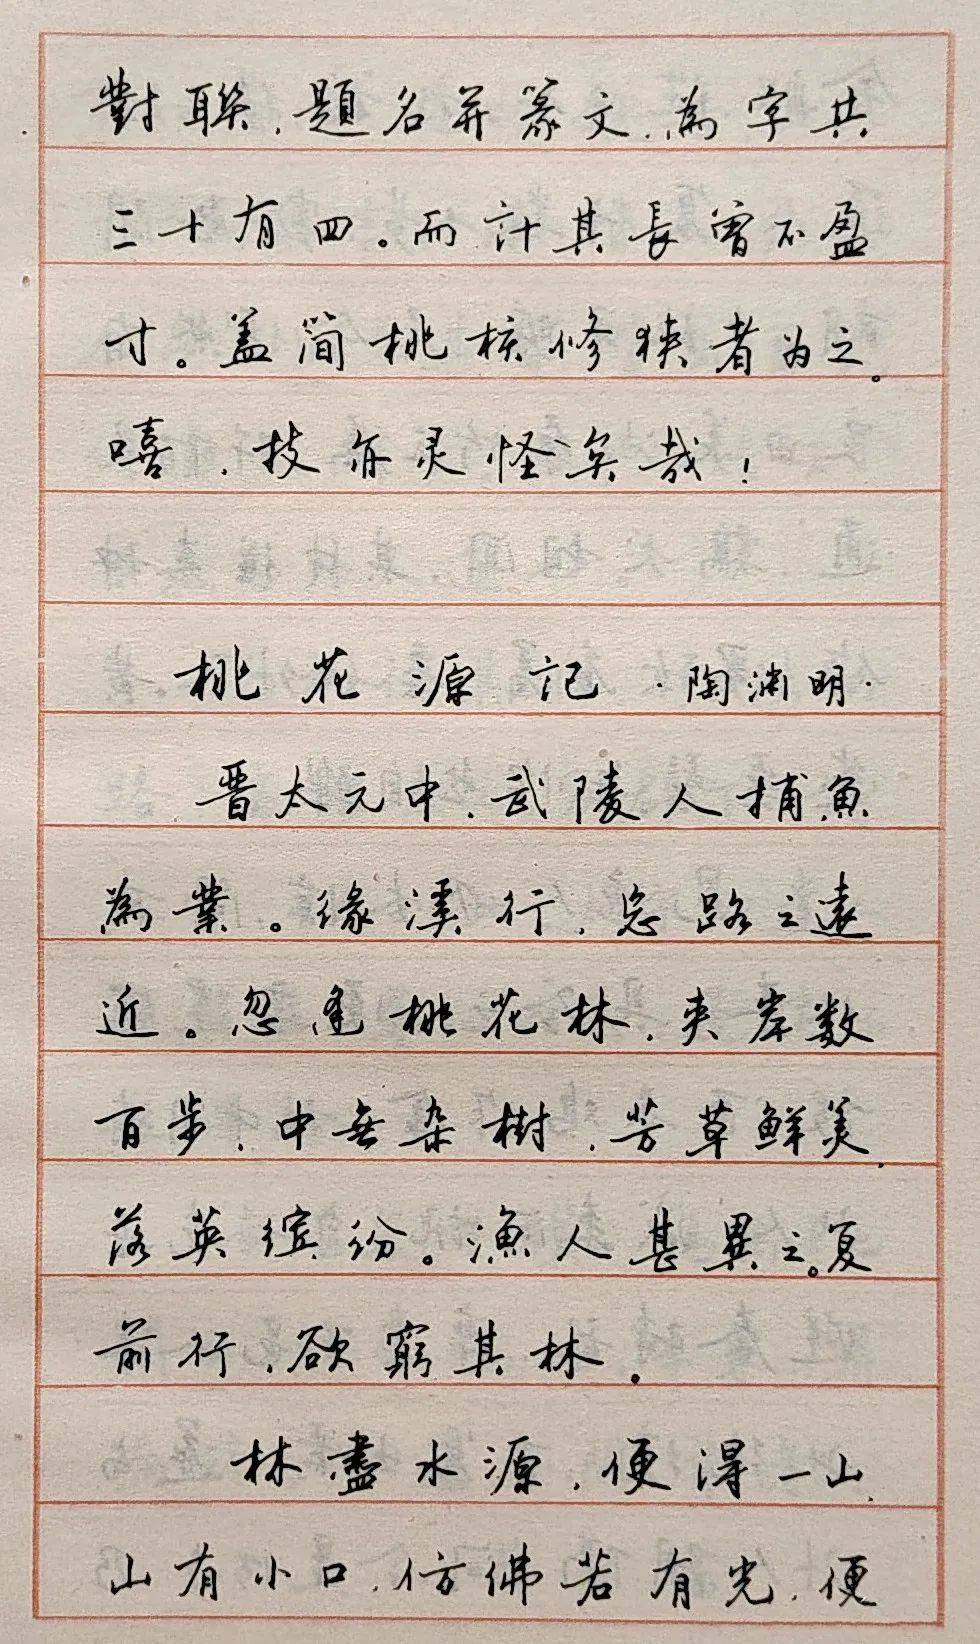 對聯，題名并篆文，為字共
三十有四。而計其長曾不盈
寸。盖简桃核修狭者为之。
嘻，技亦灵怪矣哉！
桃花源記·陶渊明·
晋太元中，武陵人捕魚
為業。缘溪行，忘路之遠
近。忽逢桃花林，夹岸数
百步，中無杂樹，芳草鲜美，
落英缤纷。漁人甚異之。复
前行，欲窮其林。
林盡水源，便得一山，
山有小口，仿佛若有光，便